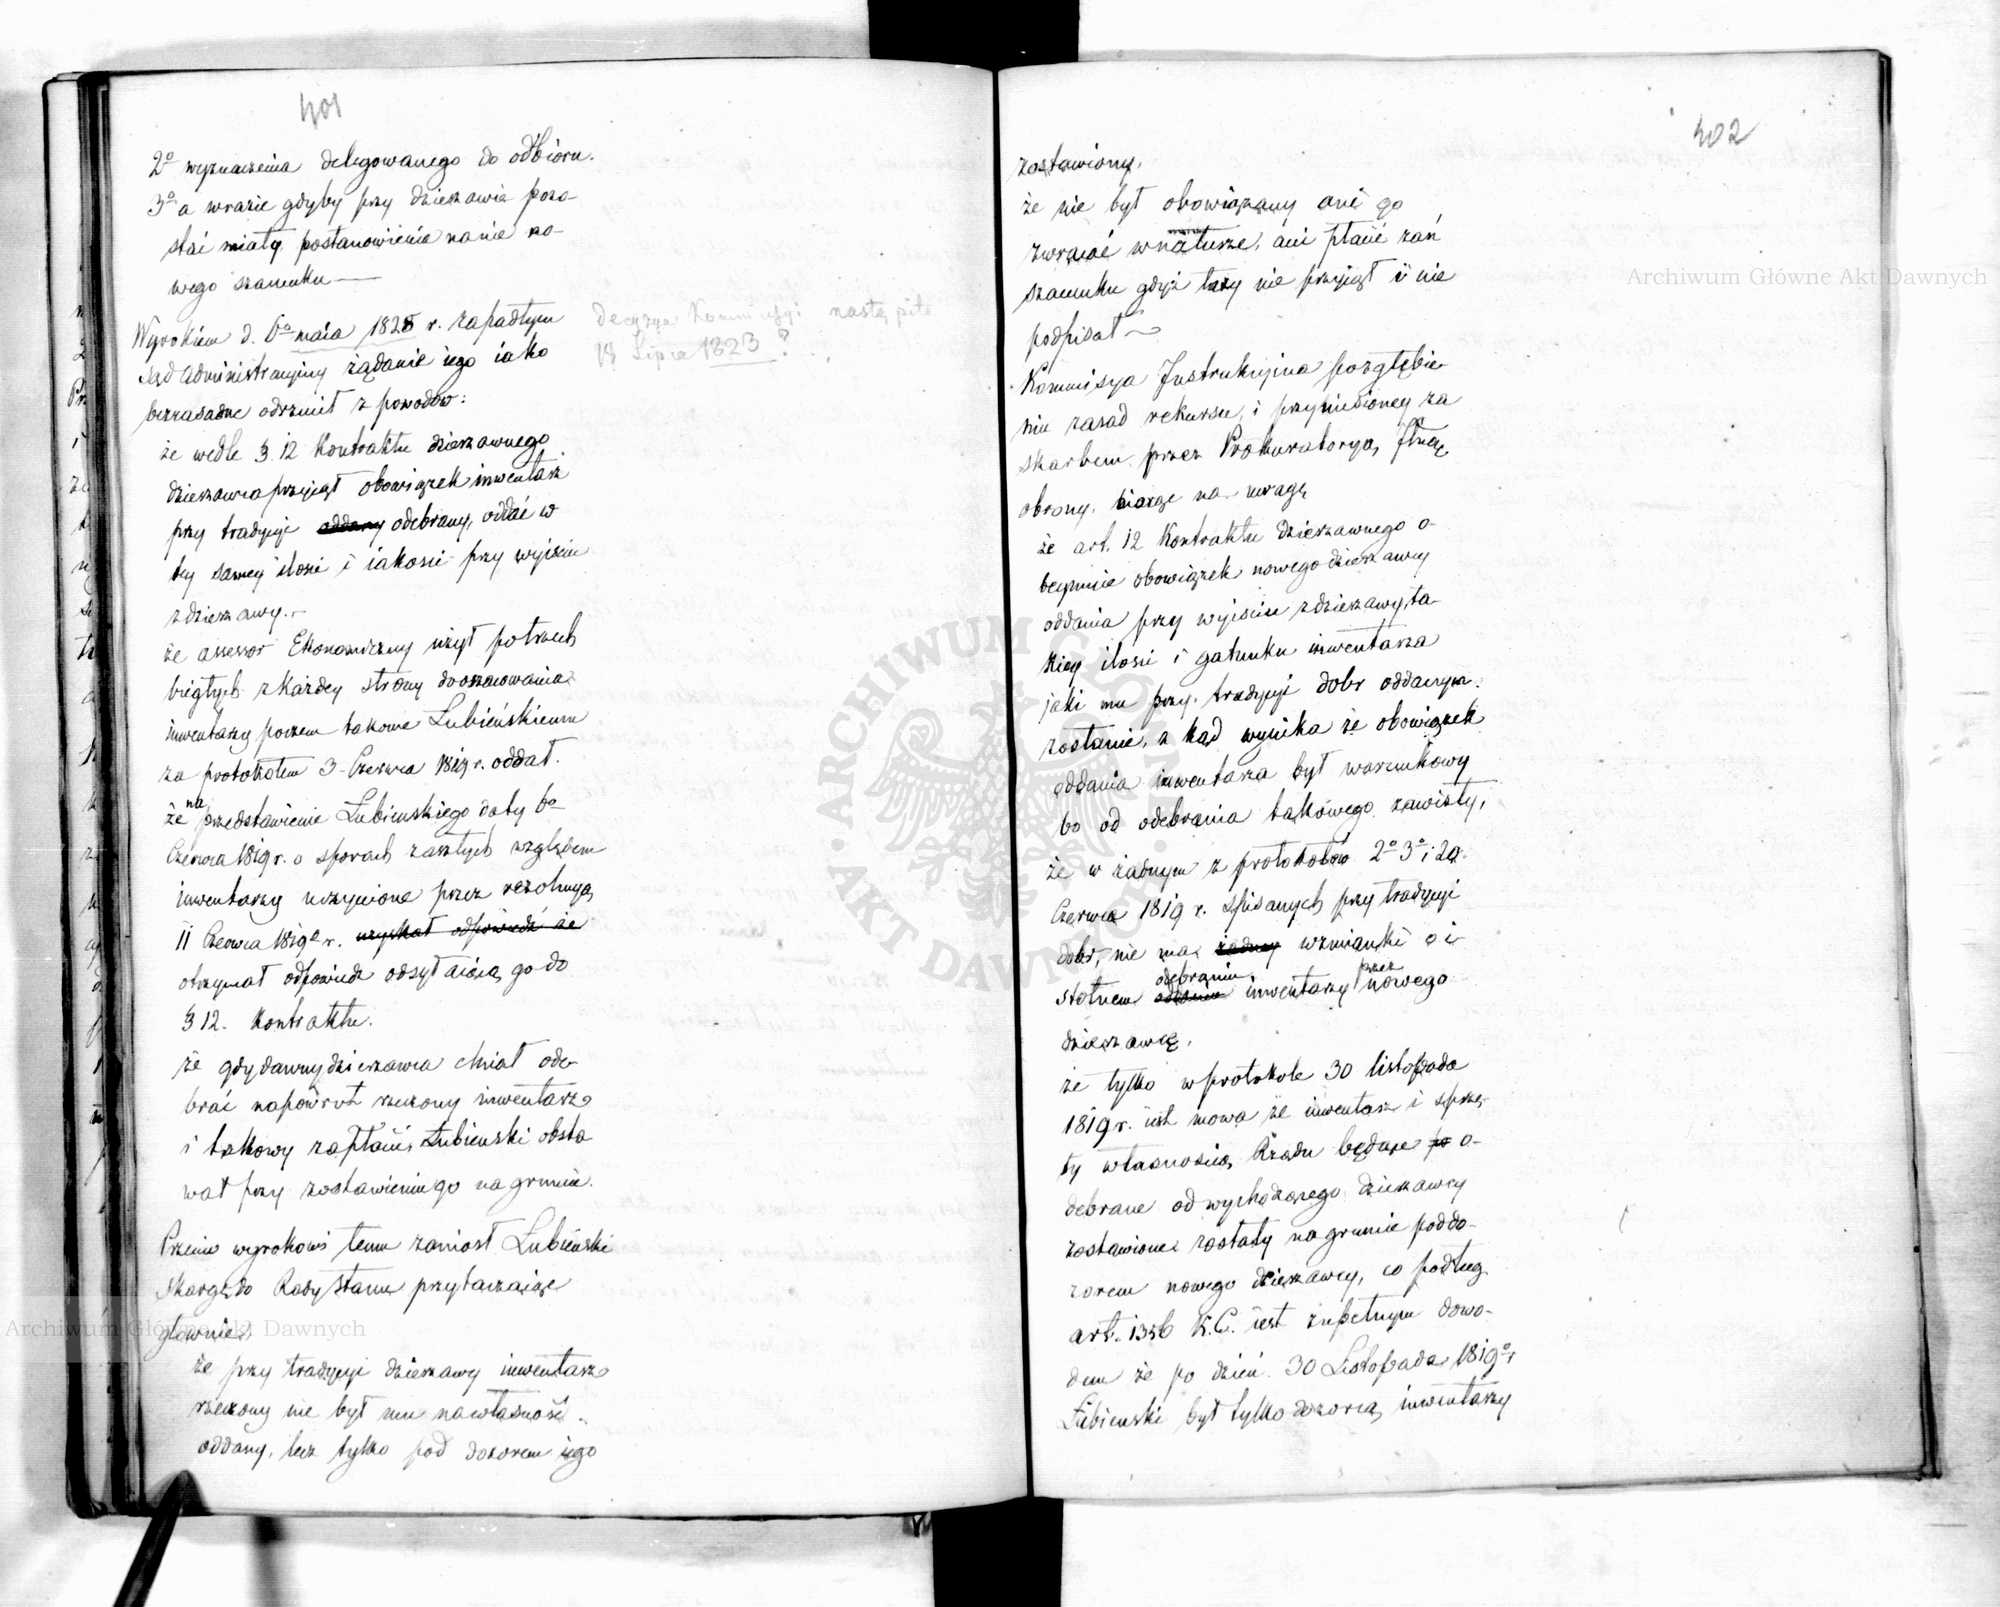 401
2º wyznaczenia delegowanego do odbioru.
3º a wrazie gdyby przy dzierzawie pozo-
stać miały postanowienie nanie no-
wego szacunku —
Wyrokiem d. 6º maia 1825 r. zapadłym
Sąd Administracyiny żądanie iego iako
bezzasadne odrzucił z powodów:
że wedle § 12 Kontraktu dzierzawnego
dzierzawca przyiął obowiązek inwentarz
przy tradycyi oddany odebrany, oddać w
tey samey ilości i iakości przy wyjściu
z dzierzawy. –
że assessor Ekonomiczny użył potrzech
biegłych z każdey strony do oszacowania
inwentarzy poczem takowe Łubieńskiemu
za protokółem 3 Czerwca 1819 r. oddał.
że na przedstawienie Łubienskiego daty 6º
Czerwca 1819 r. o sporach zaszłych względem
inwentarzy uczynione przez rezolucyą
11 Czerwca 1819º r. uzyskał odpowiedź że
otrzymał odpowiedź odsyłaiącą go do
§ 12. Kontraktu.
że gdy dawny dzierzawca chciał ode-
brać napowrót rzeczony inwentarz
i takowy zapłacić, Łubienski obsta-
wał przy zostawieniu go na gruncie.
Przeciw wyrokowi temu zaniosł Łubieński
skargę do Rady Stanu przytaczaiąc
głownie,
że przy tradycyi dzierzawy inwentarz
rzeczony nie był mu na własność
oddany, lecz tylko pod dozorem iego
decyzya Kommissyi nastąpiła
18 Lipca 1823 ?
402
zostawiony,
że nie był obowiązany ani go
zwracać w naturze, ani płacić zań
szacunku gdyż taxy nie przyiął i nie
podpisał —
Kommisya Instrukcyina pozgłębie-
niu zasad rekursu, i przyniesioney za
skarbem przez Prokuratoryą
obrony, biorąc na uwagę
że art. 12 Kontraktu dzierzawnego o-
beymuie obowiązek nowego dzierzawcy
oddania przy wyjściu z dzierzawy, ta-
kiey ilości i gatunku inwentarza
jaki mu przy tradycyi dobr oddanym
zostanie, z kąd wynika że obowiązek
oddania inwentarza był warunkowy
bo od odebrania takowego zawisły,
że w żadnym z protokołów 2º 3º i 20.
Czerwca 1819 r. spisanych przy tradycyi
dobr, nie ma żadney wzmianki o i-
stotnem oddaniu odebraniu inwentarzy przez nowego
dzierzawcę,
że tylko w protokole 30 listopada
1819 r. iest mowa że inwentarz i sprzę-
ty własnością Rządu będące po o-
debrane od wychodzącego dzierzawcy
zostawione zostały na gruncie pod do-
zorem nowego dzierzawcy, co podług
art. 1356 K.C. iest zupełnym dowo-
dem że po dzień 30 Listopada 1819º r
Łubienski był tylko dozorcą inwentarzy
Archiwum Główne Akt Dawnych
Archiwum Główne Akt Dawnych
ARCHIWUM GŁÓWNE AKT DAWNYCH